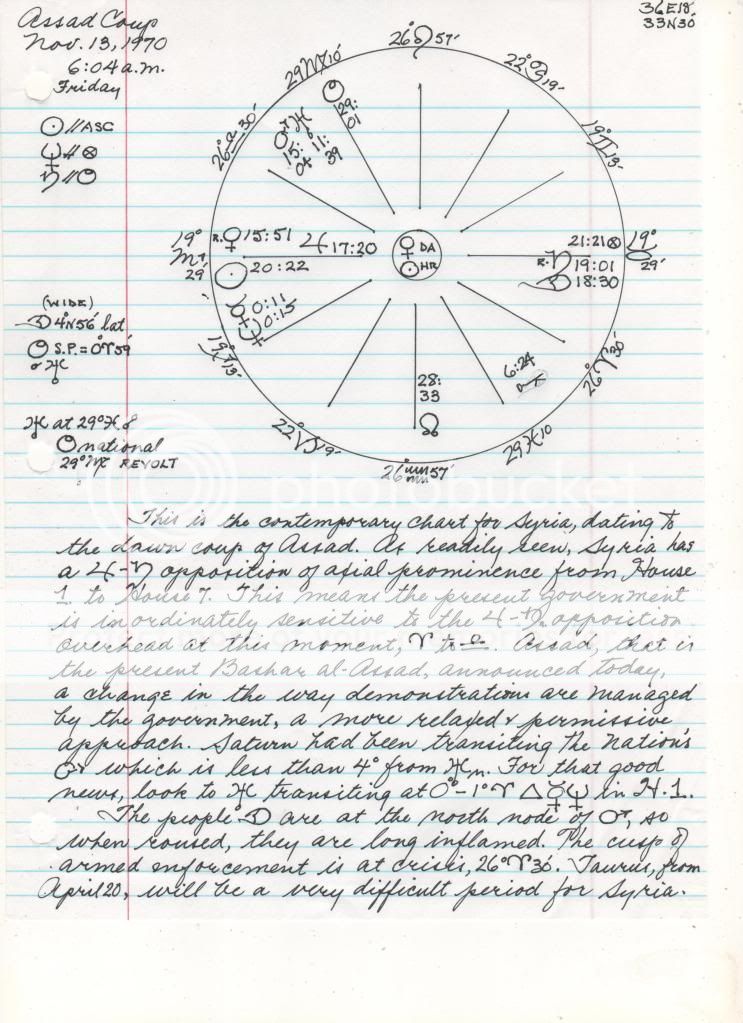 Assad Coup
Nov. 13, 1970
6:04 a.m.
Friday
36E18
33N30
☉//ASC
☿//⊗
♄//☉
(WIDE)
☽ 4N56' lat.
S.P. = 0°♈59'
♅ at 29°♓ ☍
national
29°♍ REVOLT
26°♌57'
22°♋19'
19°♊13'
19°♉29'
26°♈36'
29♓10
26♒57'
22°♑19'
19♐13'
19°♏29'
26°♎36'
29♍10'
29:01
♂ 15:04
♅ 11:39
R. ♀ 15:51
♃ 17:20
☉ 20:22
0:11
0:15
♀ DA
☉ HR
21:21 ⊗
R. ♄ 19:01
☽ 18:30
6:24
28:33
☊
This is the contemporary chart for Syria, dating to
the dawn coup of Assad. As readily seen, Syria has
a ♃-♄ opposition of axial prominence from House
1 to House 7. This means the present government
is inordinately sensitive to the ♃-♄ opposition
overhead at this moment, ♈ to ♎. Assad, that is
the present Bashar al-Assad, announced today,
a change in the way demonstrations are managed
by the government, a more relaxed & permissive
approach. Saturn had been transiting the Nation's
♂ which is less than 4° from ♅n. For that good
news, look to ♅ transiting at 0°-1°♈ △ ☿♆ in H.1.
The people ☽ are at the north node of ♂, so
when roused, they are long inflamed. The cusp of
armed enforcement is at crisis, 26°♈36'. Taurus, from
April 20, will be a very difficult period for Syria.
photobucket